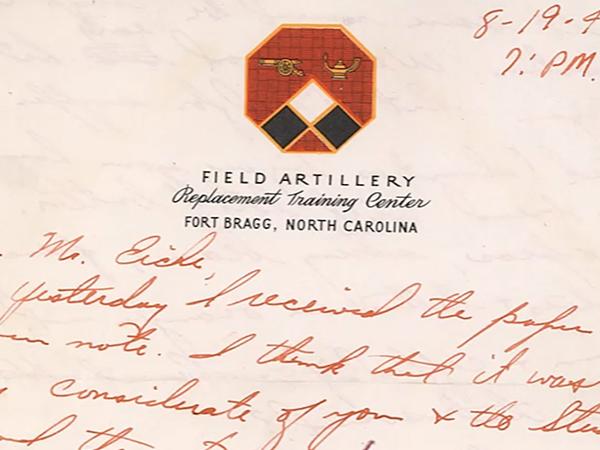 8-19-4
7: PM.
FIELD ARTILLERY
Replacement Training Center
FORT BRAGG, NORTH CAROLINA
Mr. Eiche,
Yesterday I received the paper
note. I think that it was
considerate of you & the